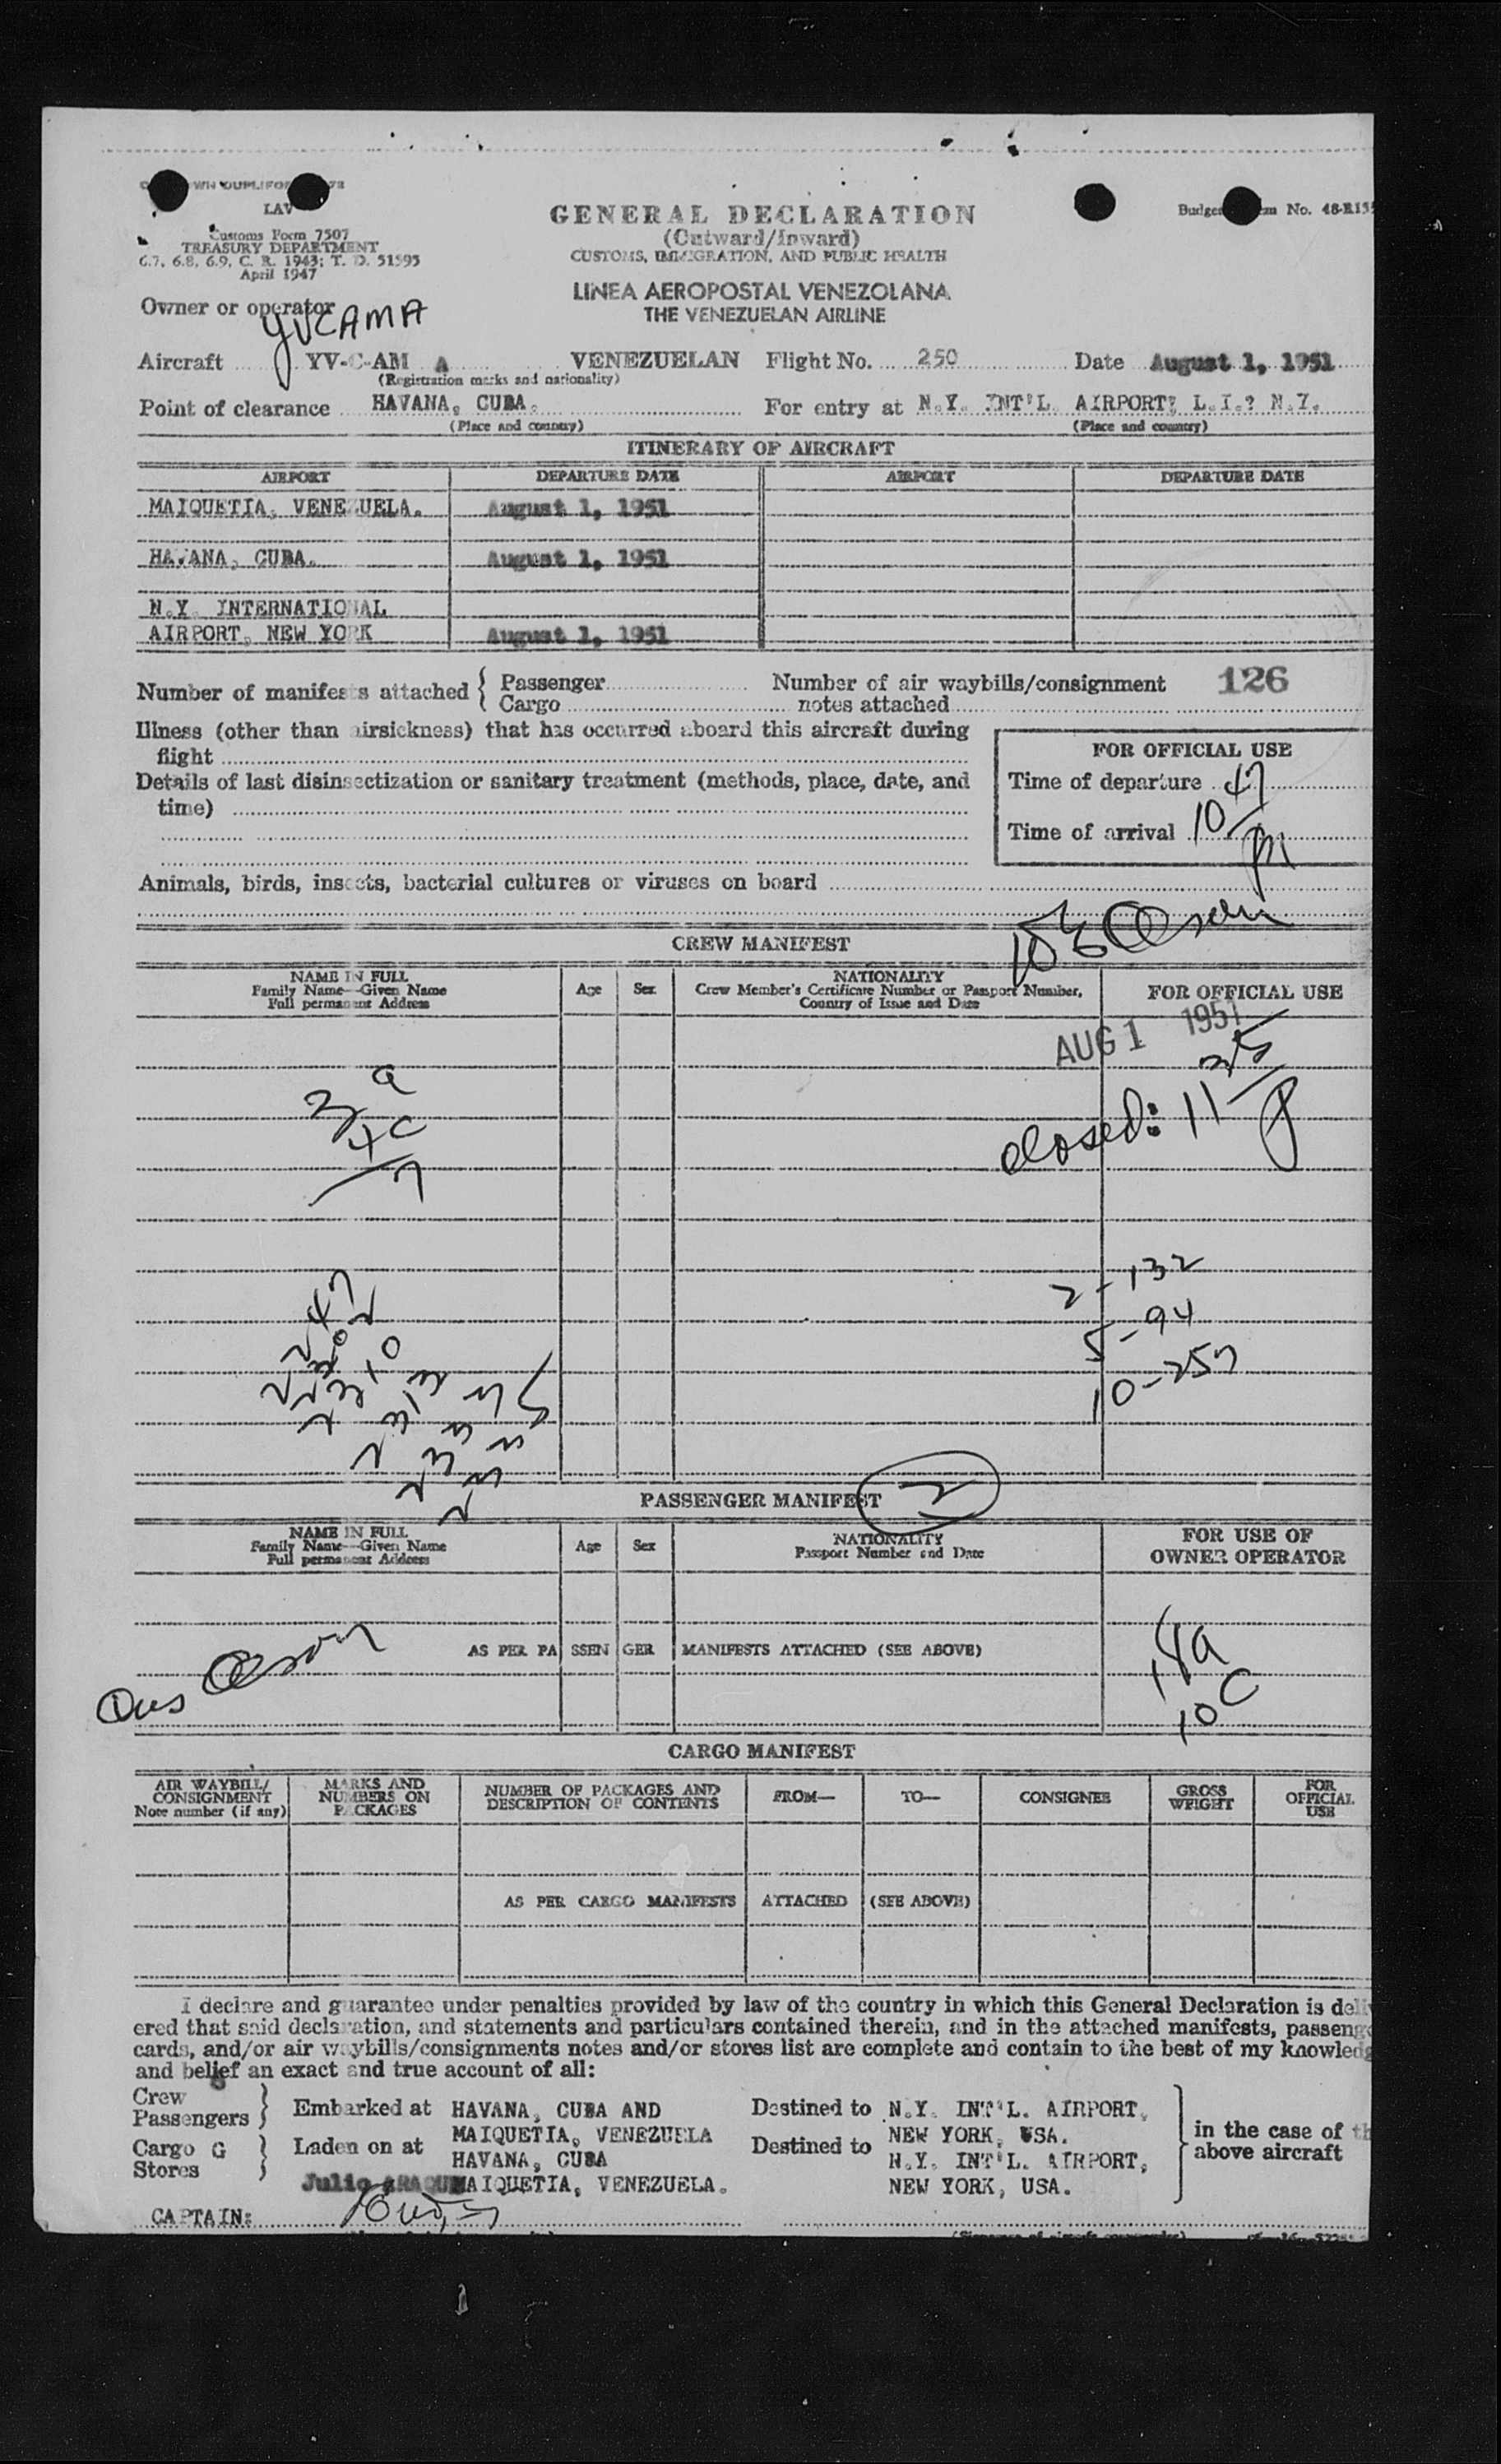 LAV
Customs Form 7507
TREASURY DEPARTMENT
6.7, 6.8, 6.9, C. R. 1943; T. D. 51595
April 1947
GENERAL DECLARATION
(Outward/Inward)
CUSTOMS, IMMIGRATION, AND PUBLIC HEALTH
LINEA AEROPOSTAL VENEZOLANA
THE VENEZUELAN AIRLINE
Budget No. 48-R135
Owner or operator
YVCAMA
Aircraft YV-C-AM A VENEZUELAN Flight No. 250 Date August 1, 1951
(Registration marks and nationality)
Point of clearance HAVANA, CUBA. For entry at N.Y. INT'L. AIRPORT, L.I.? N.Y.
(Place and country) (Place and country)
ITINERARY OF AIRCRAFT
AIRPORT DEPARTURE DATE AIRPORT DEPARTURE DATE
MAIQUETIA, VENEZUELA. August 1, 1951
HAVANA, CUBA. August 1, 1951
N.Y. INTERNATIONAL
AIRPORT, NEW YORK August 1, 1951
Number of manifests attached { Passenger Number of air waybills/consignment 126
Cargo notes attached
Illness (other than airsickness) that has occurred aboard this aircraft during
flight
Details of last disinsectization or sanitary treatment (methods, place, date, and
time)
FOR OFFICIAL USE
Time of departure
Time of arrival 10 47 PM
Animals, birds, insects, bacterial cultures or viruses on board
CREW MANIFEST
NAME IN FULL
Family Name—Given Name
Full permanent Address
Age Sex
NATIONALITY
Crew Member's Certificate Number or Passport Number,
Country of Issue and Date
FOR OFFICIAL USE
AUG 1 1951
closed: 11 35 P
3 a
4 c
7
2-132
5-94
10-257
PASSENGER MANIFEST
2
NAME IN FULL
Family Name—Given Name
Full permanent Address
Age Sex
NATIONALITY
Passport Number and Date
FOR USE OF
OWNER OPERATOR
AS PER PASSENGER MANIFESTS ATTACHED (SEE ABOVE)
18a
10 C
CARGO MANIFEST
AIR WAYBILL/
CONSIGNMENT
Note number (if any)
MARKS AND
NUMBERS ON
PACKAGES
NUMBER OF PACKAGES AND
DESCRIPTION OF CONTENTS
FROM— TO— CONSIGNEE
GROSS
WEIGHT
FOR
OFFICIAL
USE
AS PER CARGO MANIFESTS ATTACHED (SEE ABOVE)
I declare and guarantee under penalties provided by law of the country in which this General Declaration is deliv
ered that said declaration, and statements and particulars contained therein, and in the attached manifests, passenge
cards, and/or air waybills/consignments notes and/or stores list are complete and contain to the best of my knowledg
and belief an exact and true account of all:
Crew
Passengers } Embarked at HAVANA, CUBA AND
MAIQUETIA, VENEZUELA
Destined to N.Y. INT'L. AIRPORT,
NEW YORK, USA.
Cargo G
Stores } Laden on at HAVANA, CUBA
MAIQUETIA, VENEZUELA.
Destined to N.Y. INT'L. AIRPORT,
NEW YORK, USA.
in the case of th
above aircraft
Julio
CAPTAIN: